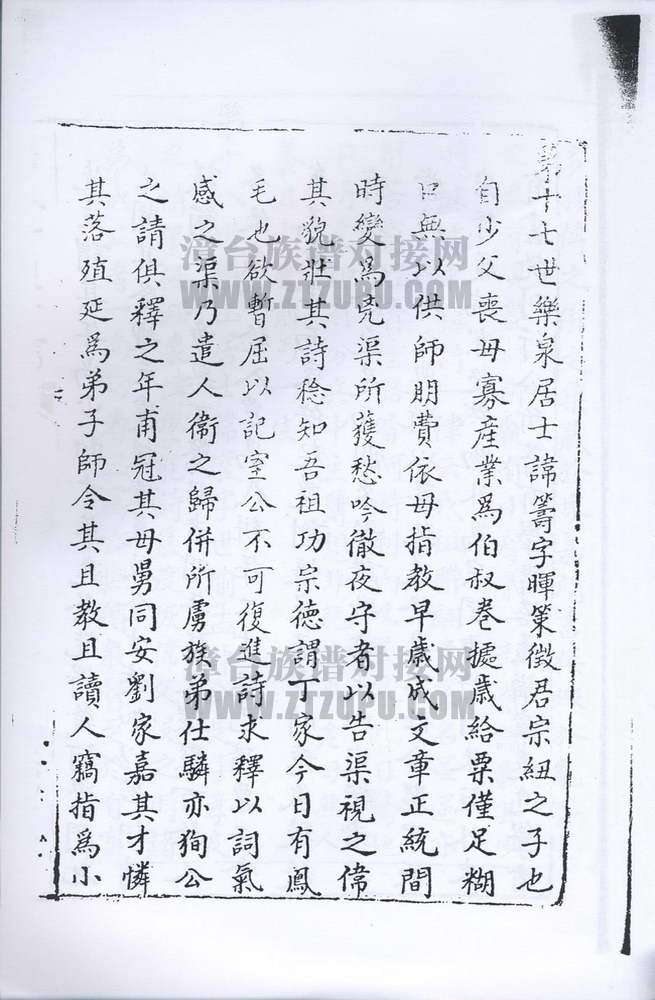 第十七世樂泉居士諱籌字暉策徵君宗紐之子也
自少父喪母寡産業爲伯叔卷攄歲給粟僅足糊
口無以供師朋費依母指教早歲成文章正統間
時變爲兇渠所獲愁吟徹夜守者以告渠視之偉
其貌壯其詩稔知吾祖功宗德謂丁家今日有鳳
毛也欲暫屈以記室公不可復進詩求釋以詞氣
感之渠乃遣人衞之歸併所虜族弟仕驎亦狥公
之請俱釋之年甫冠其母舅同安劉家嘉其才憐
其落殖延爲弟子師令其且教且讀人竊指爲小
漳台族谱对接网
WWW.ZTZUPU.COM
漳台族谱对接网
WWW.ZTZUPU.COM